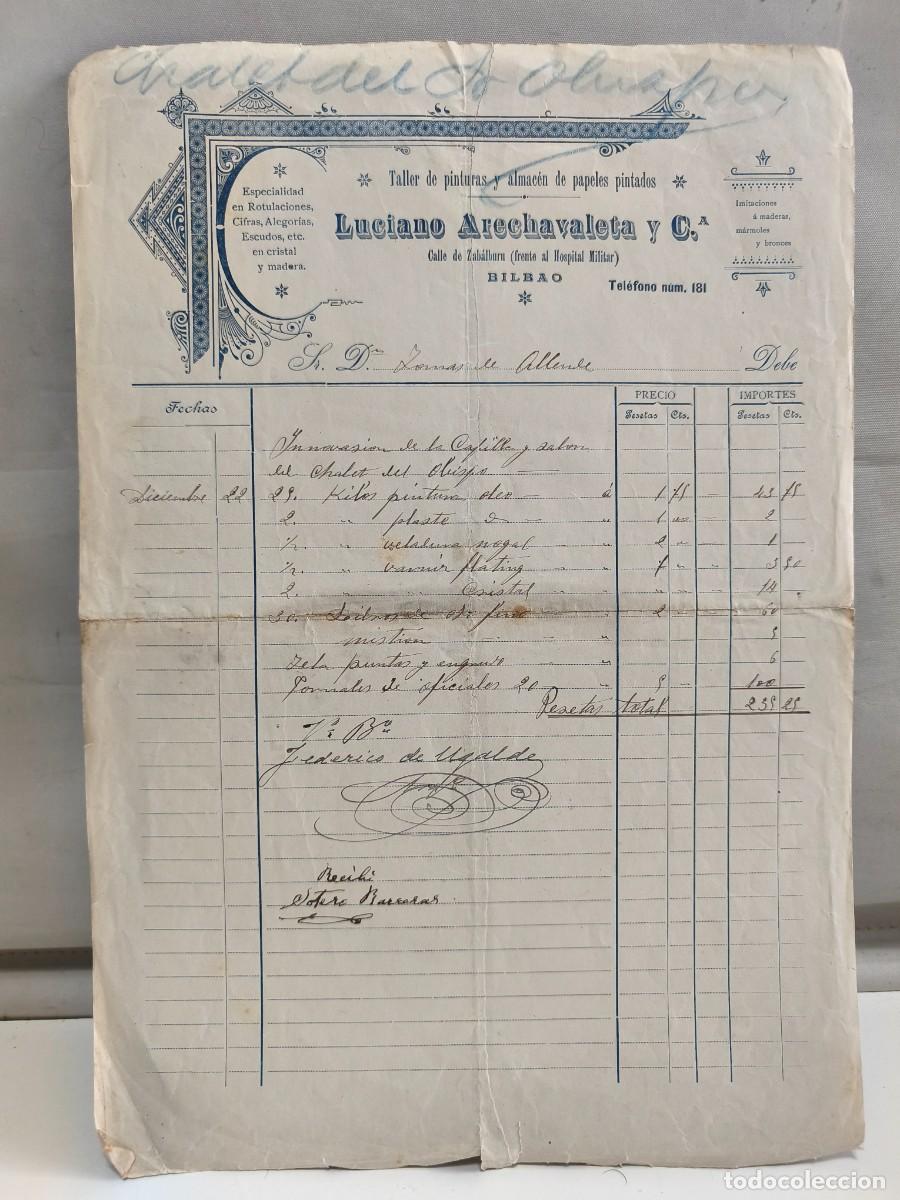 Chalet del Sr Obispo
Especialidad
en Rotulaciones,
Cifras, Alegorías,
Escudos, etc.
en cristal
y madera.
Taller de pinturas y almacén de papeles pintados
Luciano Arechavaleta y C.ª
Calle de Zabálburu (frente al Hospital Militar)
BILBAO
Teléfono núm. 181
Imitaciones
á maderas,
mármoles
y bronces
Sr. Dn Tomas de Allende Debe
Fechas PRECIO IMPORTES
Pesetas Cts. Pesetas Cts.
Innovasion de la Capilla y salon
del Chalet del Obispo
Diciembre 22 29. Kilos pintura oleo á 1 75 43 75
2. " plaste " 1 " 2
1/2. " veladura nogal " 2 " 1
1/2. " varnir flating " 7 " 3 50
2. " cristal " " " 14
30. de oro fino 2 60
mistion " 5
Tela puntas y engrudo " 6
Jornales de oficiales 20 5 100
Pesetas total 235 25
Vº Bº
Federico de Ugalde
Recibi
Sotero Barreras
todocoleccion